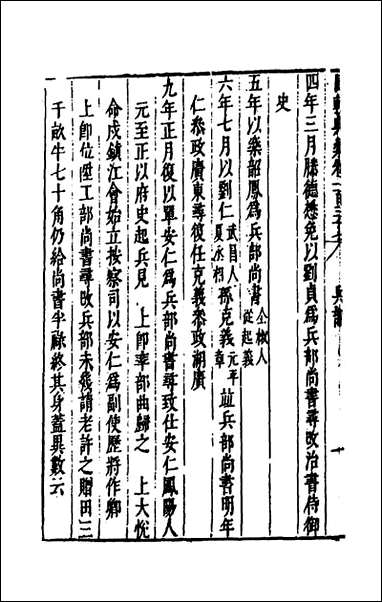 四年三月滕德懋免以劉貞爲兵部尚書尋改治書侍御
史
五年以樂韶鳳爲兵部尚書全椒人從起義
六年七月以劉仁武昌人夏丞相孫克義元平章竝兵部尚書明年
仁叅政廣東尋復任克義叅政湖廣
九年正月復以單安仁爲兵部尚書尋致仕安仁鳳陽人
元至正以府史起兵見　上卽率部曲歸之　上大悅
命戍鎮江會始立按察司以安仁爲副使歷將作卿
上卽位陞工部尚書尋改兵部未幾請老許之贈田三
千畝牛七十角仍給尚書半祿終其身蓋異數云